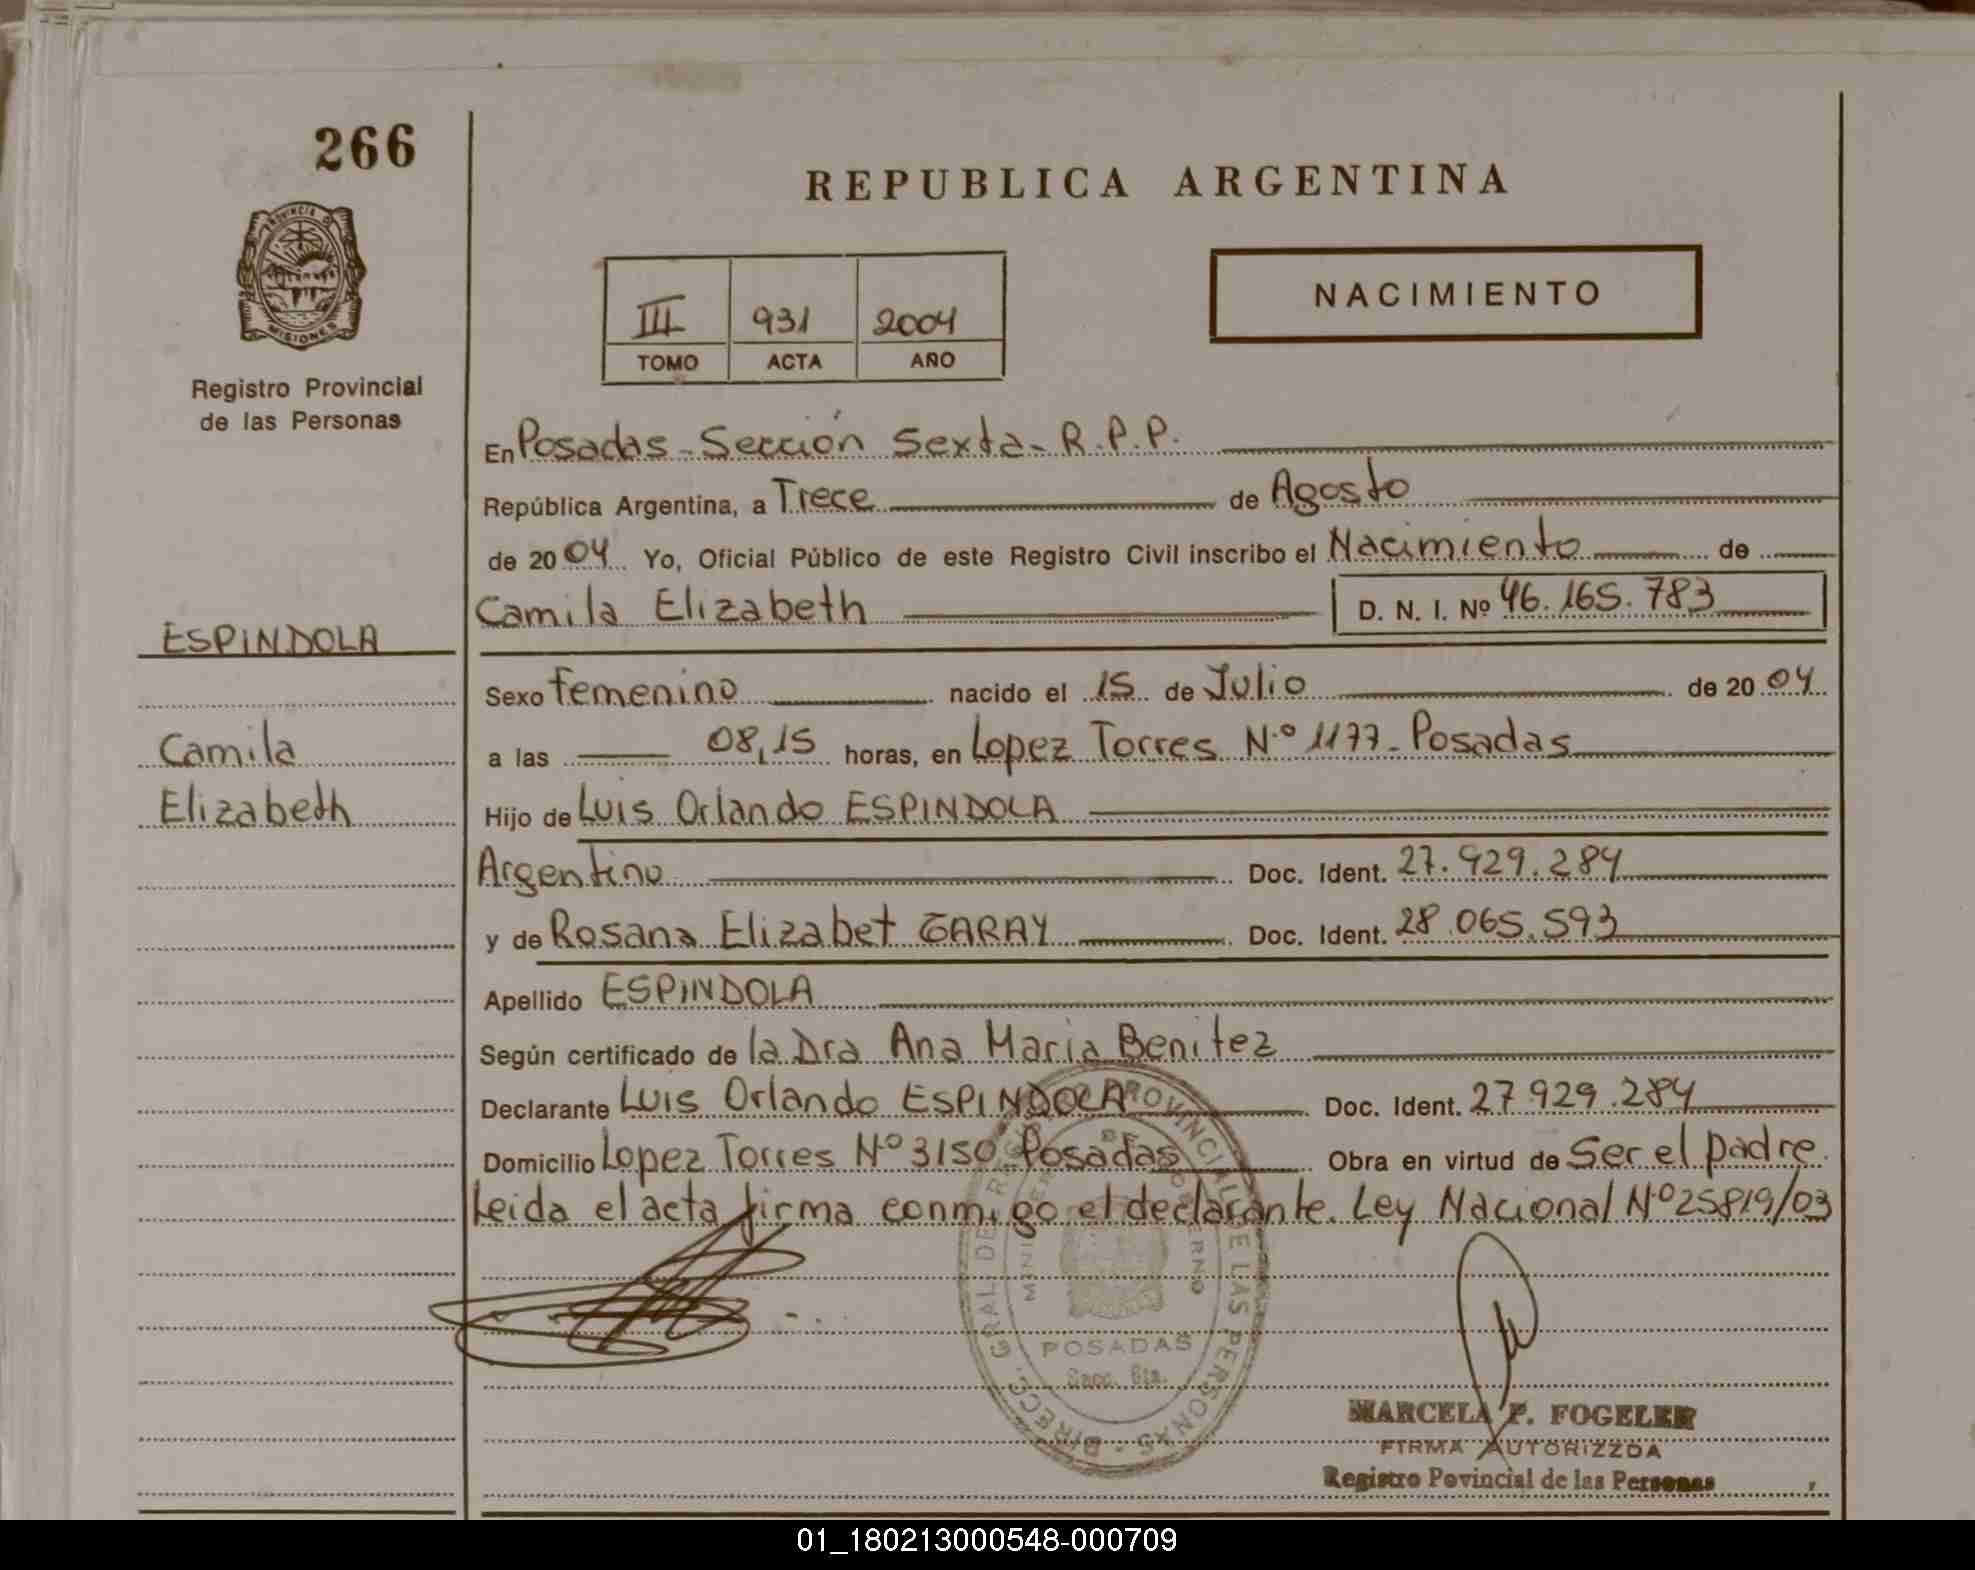 266
PROVINCIA D
MISIONES
Registro Provincial
de las Personas
REPUBLICA ARGENTINA
III 931 2004
TOMO ACTA AÑO
NACIMIENTO
En Posadas - Sección Sexta - R.P.P.
República Argentina, a Trece de Agosto
de 20 04 Yo, Oficial Público de este Registro Civil inscribo el Nacimiento de
Camila Elizabeth D. N. I. Nº 46.165.783
ESPINDOLA
Sexo femenino nacido el 15 de Julio de 20 04
Camila
a las 08,15 horas, en Lopez Torres Nº 1177 - Posadas
Elizabeth
Hijo de Luis Orlando ESPINDOLA
Argentino Doc. Ident. 27.929.284
y de Rosana Elizabet GARAY Doc. Ident. 28.065.593
Apellido ESPINDOLA
Según certificado de la Dra Ana Maria Benitez
Declarante Luis Orlando ESPINDOLA Doc. Ident. 27 929.284
Domicilio Lopez Torres Nº 3150 Posadas Obra en virtud de Ser el padre
Leida el acta firma conmigo el declarante. Ley Nacional Nº 25819/03
DIREC. GRAL. DE REGISTRO PROVINCIAL DE LAS PERSONAS
MINISTERIO DE GOBIERNO
POSADAS
Secc. 6ta.
MARCELA P. FOGELER
FIRMA AUTORIZZDA
Registro Povincial de las Personas
01_180213000548-000709